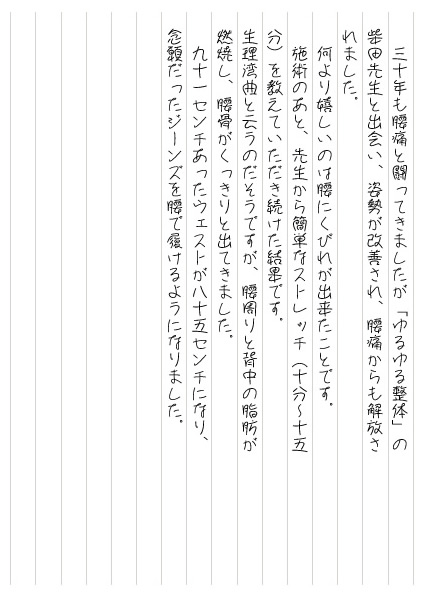 三十年も腰痛と闘ってきましたが「ゆるゆる整体」の
柴田先生と出会い、姿勢が改善され、腰痛からも解放さ
れました。
何より嬉しいのは腰にくびれが出来たことです。
施術のあと、先生から簡単なストレッチ（十分〜十五
分）を教えていただき続けた結果です。
生理湾曲と云うのだそうですが、腰周りと背中の脂肪が
燃焼し、腰骨がくっきりと出てきました。
九十一センチあったウェストが八十五センチになり、
念願だったジーンズを腰で履けるようになりました。